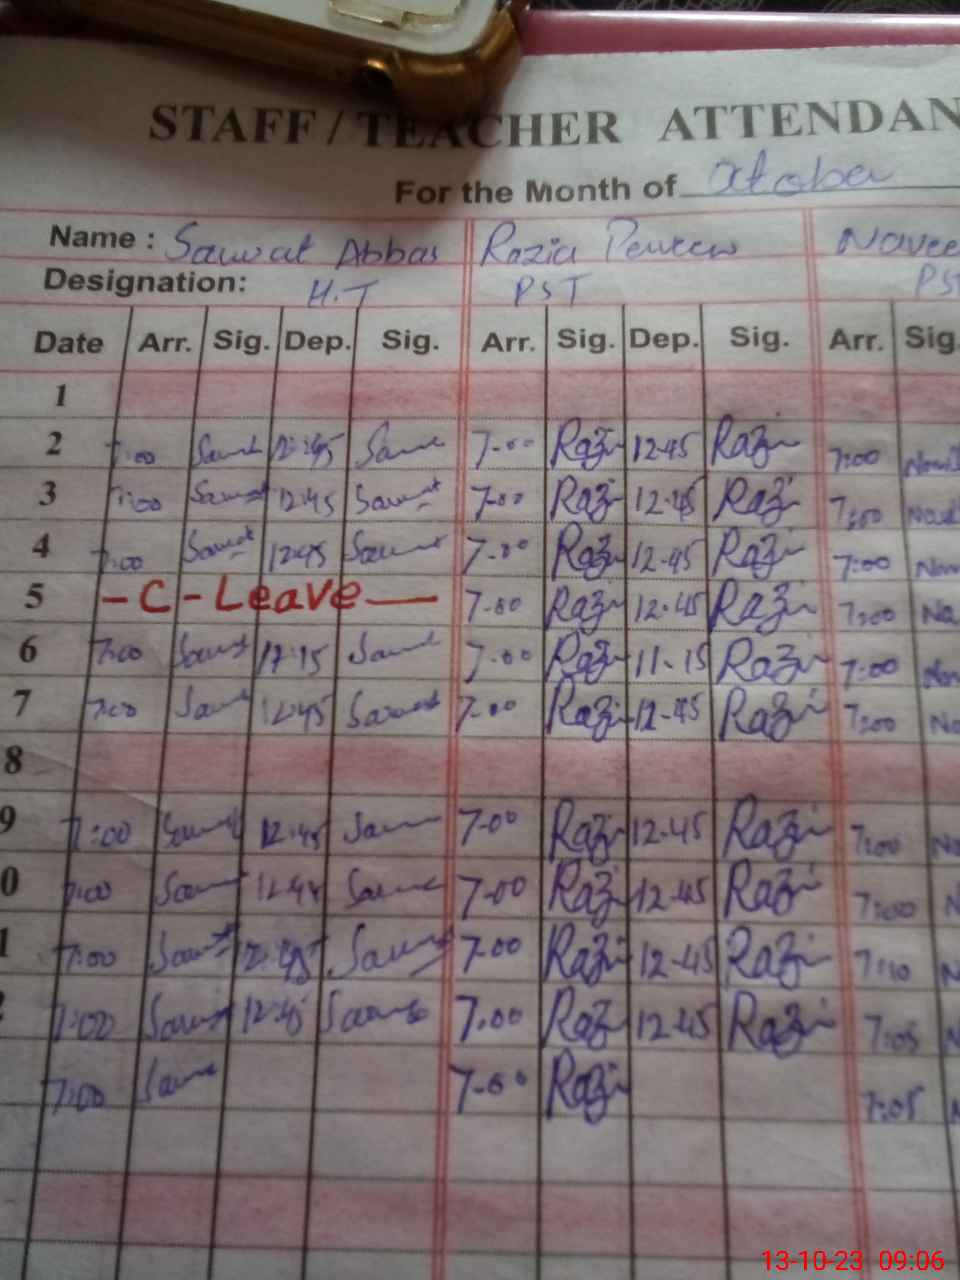 STAFF / TEACHER ATTENDAN
For the Month of October
Name : Sawat Abbas Razia Perveen Navee
Designation: H.T PST PST
Date Arr. Sig. Dep. Sig. Arr. Sig. Dep. Sig. Arr. Sig.
1
2 7:00 12:45 7-00 Razi 12-45 Razi 7:00
3 7:00 Sawat 12:45 Sawat 7-00 Razi 12-45 Razi 7:00
4 7:00 Sawat 12:45 Sawat 7-00 Razi 12-45 Razi 7:00
5 - C - Leave — 7-00 Razi 12-45 Razi 7:00 Na
6 7:00 7-00 Razi 11-15 Razi 7:00
7 7:00 12:45 Sawat 7-00 Razi 12-45 Razi 7:00 Na
8
9 7:00 12:45 7-00 Razi 12-45 Razi 7:00 Na
0 7:00 7-00 Razi 12-45 Razi 7:00 N
1 7:00 12:45 7-00 Razi 12-45 Razi 7:10 N
7:00 12:45 7-00 Razi 12-45 Razi 7:05 N
7:00 7-00 Razi 7:05
13-10-23 09:06